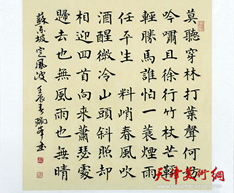 莫聽穿林打葉聲何妨
吟嘯且徐行竹杖芒鞋
輕勝馬誰怕一蓑煙雨
任平生料峭春風吹
酒醒微冷山頭斜照却
相迎回首向來蕭瑟處
歸去也無風雨也無晴
蘇東坡定風波壬辰年書
天津美術網